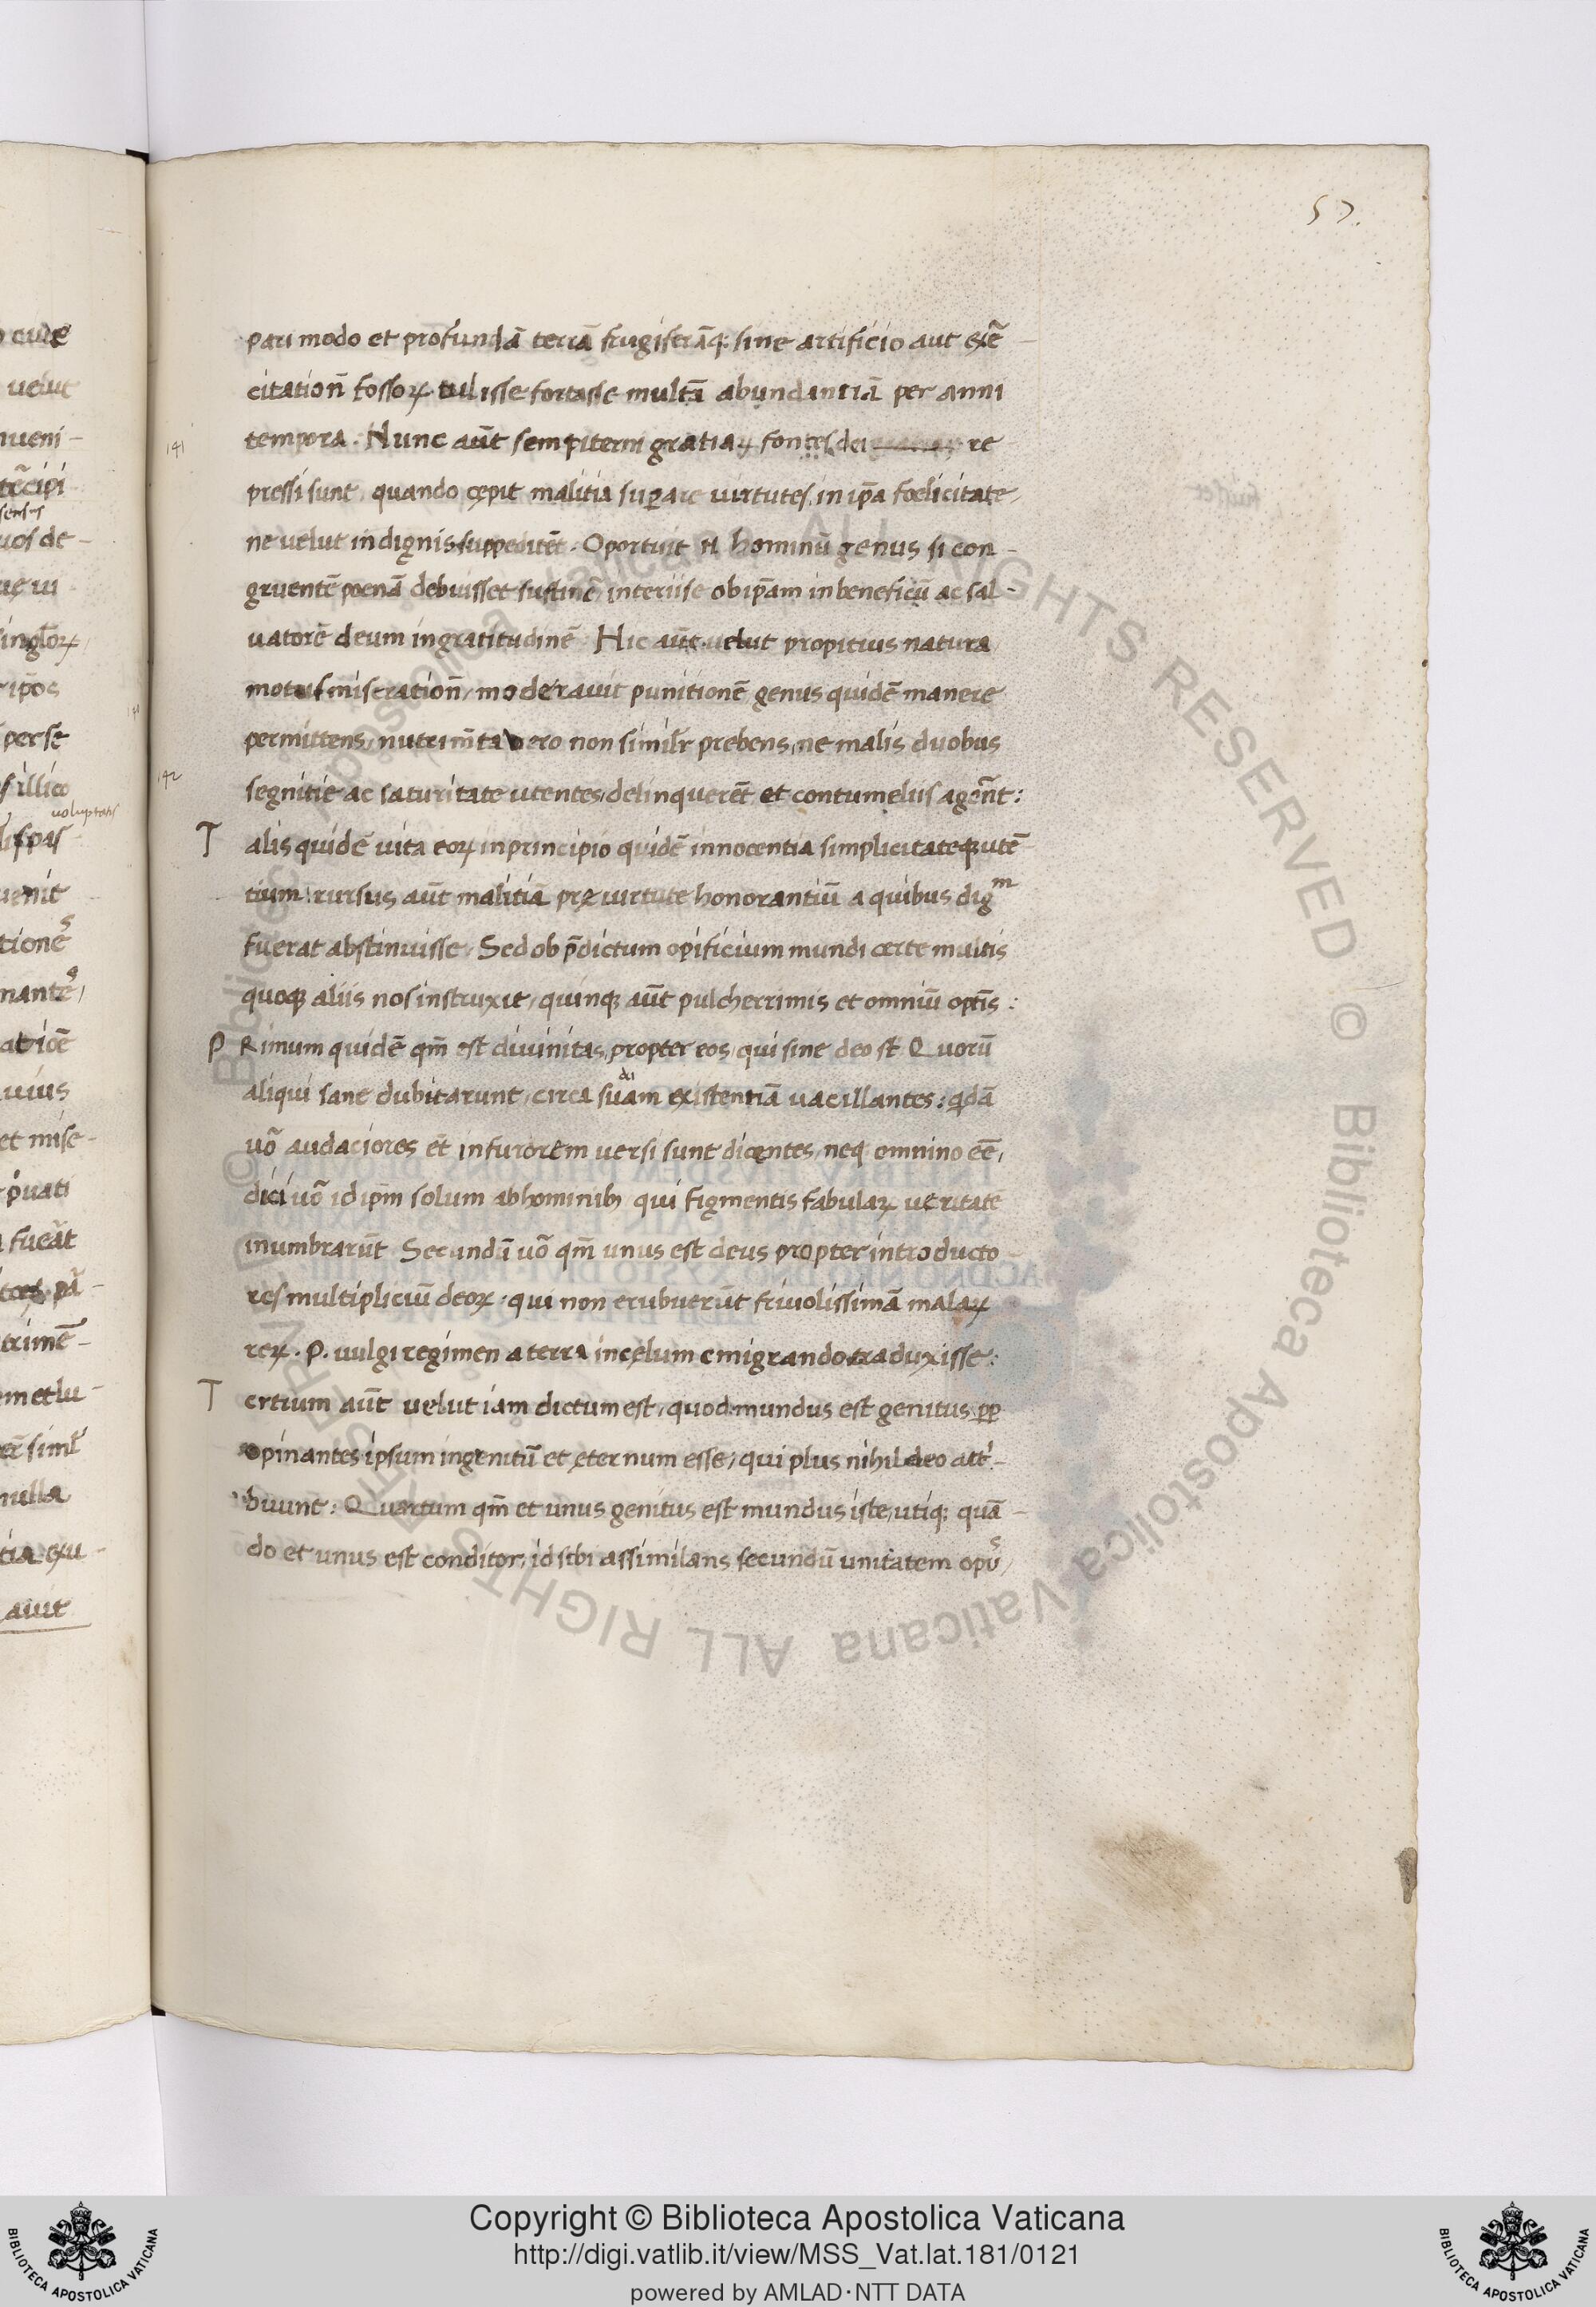 57.
pari modo et profundā terrā frugiferāq; sine artificio aut exē
citatioñ fossoꝝ tulisse fortasse multā abundantiā per anni
141 tempora. Nunc aūt sempiterni gratiaꝝ fontes dei re
pressi sunt, quando cępit malitia suꝑare virtutes, in ip̄a foelicitate,
ne velut indignis suppeditēt. Oportuit hominū genus si con-
gruentē poenā debuisset sustinē, interiise ob ip̄am in beneficū ac sal-
vatorē deum ingratitudinē Hic aūt velut propitius natura
motus miseratioñ, moderavit punitionē genus quidē manere
permittens, nutrim̄ta vero non similr̄ prebens, ne malis duobus
142 segnitie ac saturitate utentes, delinquerēt et contumeliis agēnt:
Talis quidē vita eoꝝ in principio quidē innocentia simplicitateqȝ utē
tium: rursus aūt malitiā prę virtute honorantiū a quibus digᵐ
fuerat abstinuisse. Sed ob p̄dictum opificium mundi certe multis
quoqȝ aliis nos instruxit, quinqȝ aūt pulcherrimis et omniū optīs:
PRimum quidē qm̄ est divinitas, propter eos, qui sine deo st̄ Quorū
dei
aliqui sane dubitarunt, circa suam existentiā vacillantes: qdā
uō audaciores et in furorem versi sunt dicentes, neq omnino eē,
dici uō id ip̄m solum ab hominibȝ qui figmentis fabulaꝝ veritatē
inumbrarūt Secundū uō qm̄ unus est deus propter introducto-
res multipliciū deoꝝ. qui non erubuerūt frivolissimā malaꝝ
reꝝ. P. vulgi regimen a terra in cęlum emigrando traduxisse:
Tertium aūt velut iam dictum est, quod mundus est genitus ꝑꝑ
opinantes ipsum ingenitū et ęternum esse, qui plus nihil deo attı-
buunt: Quartum qm̄ et unus genitus est mundus iste, utiq; quā-
do et unus est conditor, id sibi assimilans secundū unitatem opꝰ,
o cure
velut
nueni-
sensus
uos de-
ue ui
singloꝝ,
ip̄os
per se
illico
voluptatis
uenit
tionē
nante,
uius
et mise-
p̊uati
trimē-
em et lu-
nulla
avit
Copyright © Biblioteca Apostolica Vaticana
http://digi.vatlib.it/view/MSS_Vat.lat.181/0121
powered by AMLAD·NTT DATA
BIBLIOTECA APOSTOLICA VATICANA
BIBLIOTECA APOSTOLICA VATICANA
© Biblioteca Apostolica Vaticana ALL RIGHTS RESERVED © Biblioteca Apostolica Vaticana ALL RIGHTS RESERVED